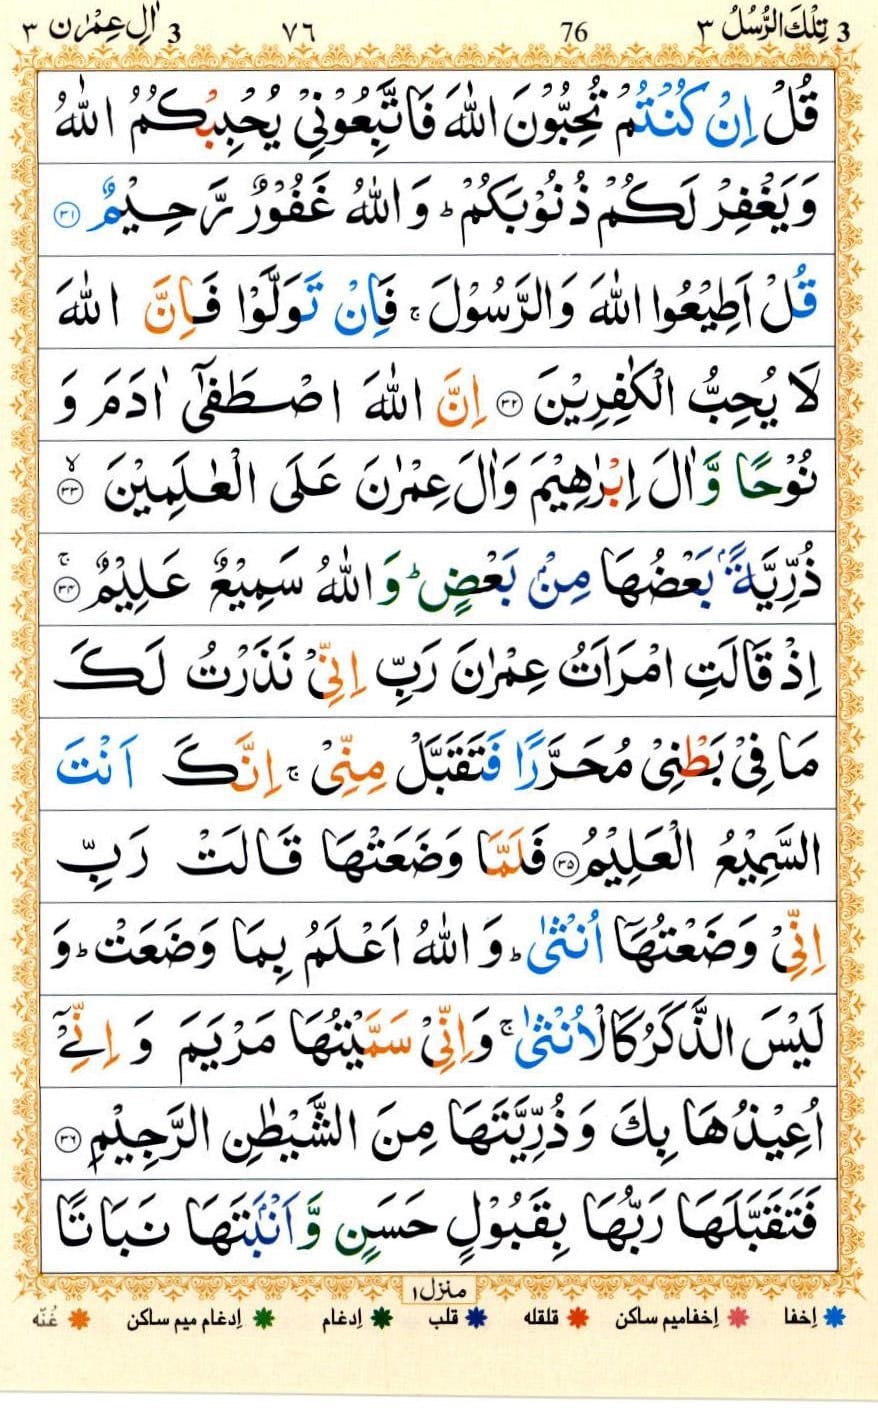 3 تِلْكَ الرُّسُلُ ٣ 76 ٧٦ 3 اٰلِ عِمْرٰن ٣
قُلْ اِنْ كُنْتُمْ تُحِبُّوْنَ اللّٰهَ فَاتَّبِعُوْنِيْ يُحْبِبْكُمُ اللّٰهُ
وَيَغْفِرْ لَكُمْ ذُنُوْبَكُمْ ؕ وَاللّٰهُ غَفُوْرٌ رَّحِيْمٌ ۝۳۱
قُلْ اَطِيْعُوا اللّٰهَ وَالرَّسُوْلَ ۚ فَاِنْ تَوَلَّوْا فَاِنَّ اللّٰهَ
لَا يُحِبُّ الْكٰفِرِيْنَ ۝۳۲ اِنَّ اللّٰهَ اصْطَفٰٓى اٰدَمَ وَ
نُوْحًا وَّاٰلَ اِبْرٰهِيْمَ وَاٰلَ عِمْرٰنَ عَلَى الْعٰلَمِيْنَ ۝۳۳ ۙ
ذُرِّيَّةًۢ بَعْضُهَا مِنْۢ بَعْضٍ ؕ وَاللّٰهُ سَمِيْعٌ عَلِيْمٌ ۝۳۴ ۚ
اِذْ قَالَتِ امْرَاَتُ عِمْرٰنَ رَبِّ اِنِّيْ نَذَرْتُ لَكَ
مَا فِيْ بَطْنِيْ مُحَرَّرًا فَتَقَبَّلْ مِنِّيْ ۚ اِنَّكَ اَنْتَ
السَّمِيْعُ الْعَلِيْمُ ۝۳۵ فَلَمَّا وَضَعَتْهَا قَالَتْ رَبِّ
اِنِّيْ وَضَعْتُهَاۤ اُنْثٰى ؕ وَاللّٰهُ اَعْلَمُ بِمَا وَضَعَتْ ؕ وَ
لَيْسَ الذَّكَرُ كَالْاُنْثٰى ۚ وَاِنِّيْ سَمَّيْتُهَا مَرْيَمَ وَ اِنِّيْۤ
اُعِيْذُهَا بِكَ وَذُرِّيَّتَهَا مِنَ الشَّيْطٰنِ الرَّجِيْمِ ۝۳۶
فَتَقَبَّلَهَا رَبُّهَا بِقَبُوْلٍ حَسَنٍ وَّاَنْۢبَتَهَا نَبَاتًا
منزل ١
اِخفا اِخفا میم ساکن قلقله قلب اِدغام اِدغام میم ساکن غُنّه